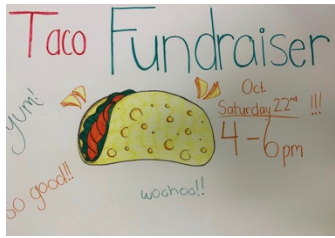 Taco Fundraiser
Oct.
Saturday 22nd !!!
4-6pm
yum!
so good!!
woohoo!!